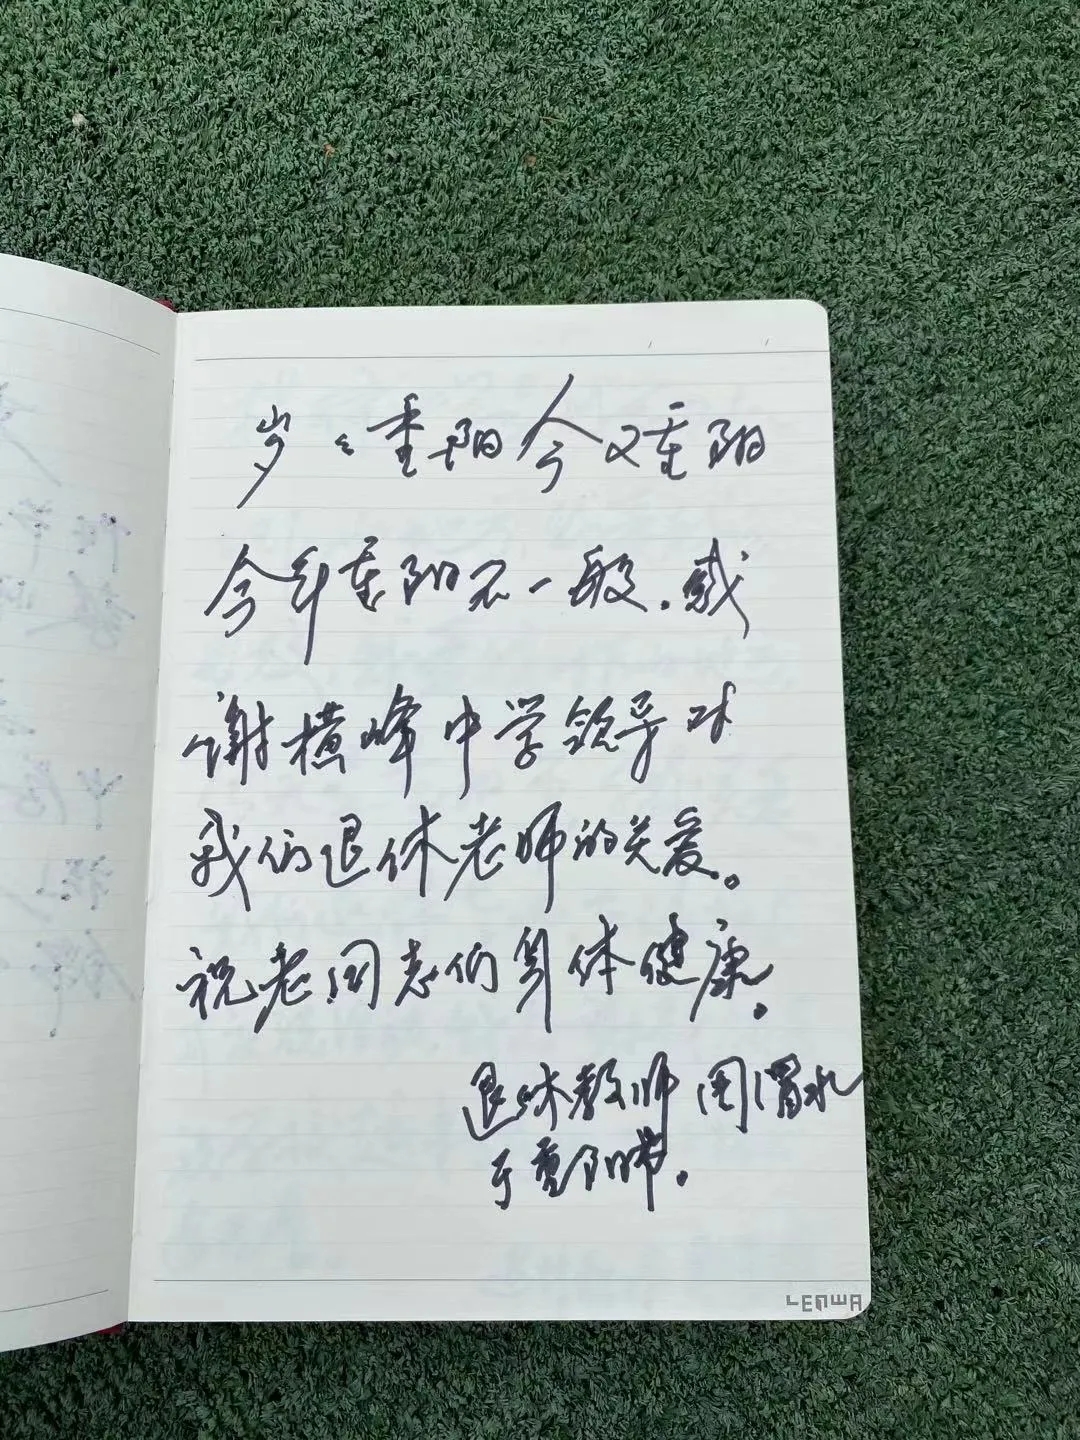 岁々重阳今又重阳
今年重阳不一般。感
谢横峰中学领导对
我们退休老师的关爱。
祝老同志们身体健康。
退休教师 周渭水
于重阳节。
LENWA